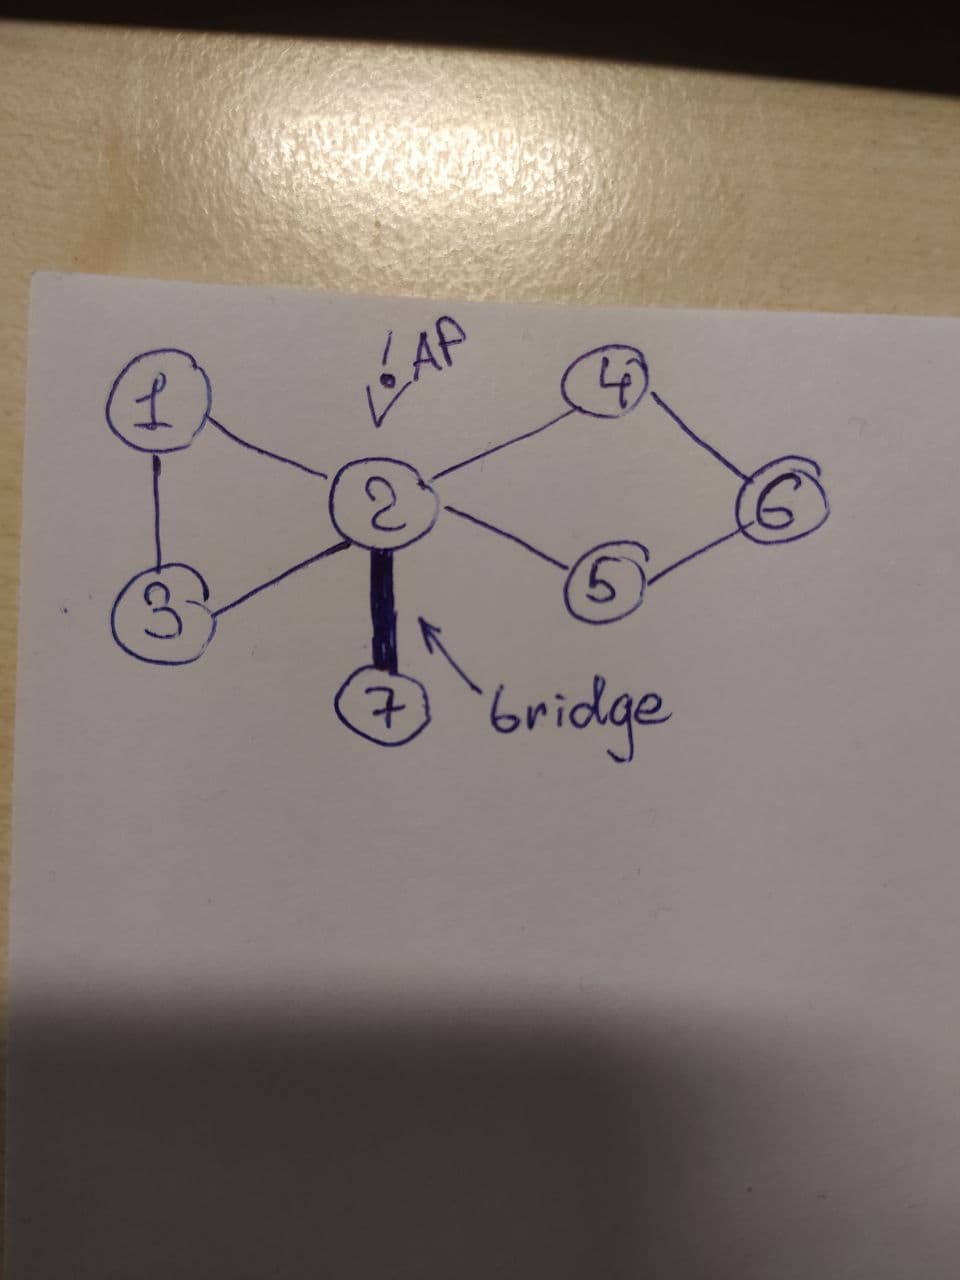 ! AP
1
4
2
6
3
5
7
bridge